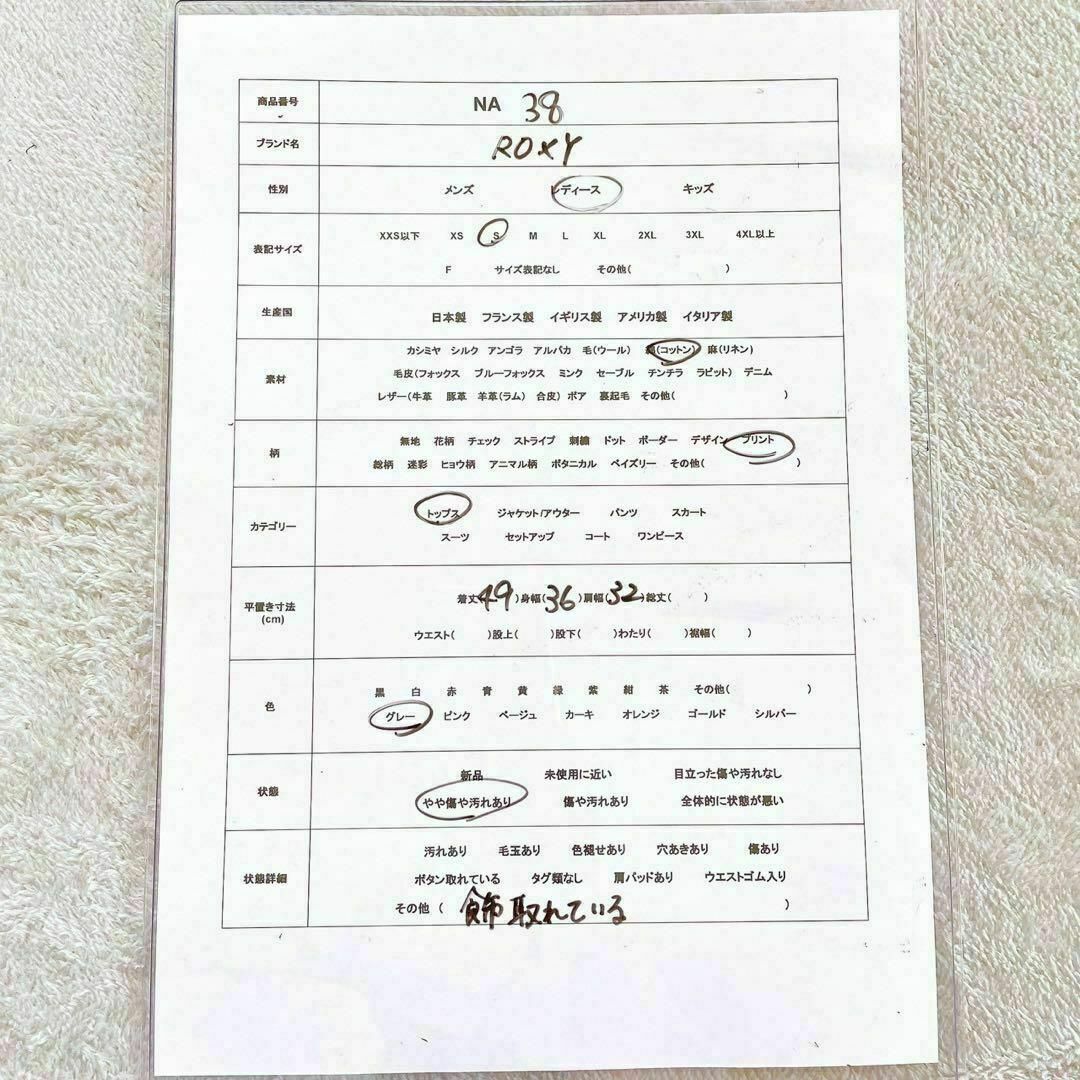 商品番号 NA 38
ブランド名 ROXY
性別 メンズ レディース キッズ
表記サイズ XXS以下 XS S M L XL 2XL 3XL 4XL以上
F サイズ表記なし その他( )
生産国 日本製 フランス製 イギリス製 アメリカ製 イタリア製
素材 カシミヤ シルク アンゴラ アルパカ 毛(ウール) (コットン) 麻(リネン)
毛皮(フォックス ブルーフォックス ミンク セーブル チンチラ ラビット) デニム
レザー(牛革 豚革 羊革(ラム) 合皮) ボア 裏起毛 その他( )
柄 無地 花柄 チェック ストライプ 刺繍 ドット ボーダー デザイン プリント
総柄 迷彩 ヒョウ柄 アニマル柄 ボタニカル ペイズリー その他( )
カテゴリー トップス ジャケット/アウター パンツ スカート
スーツ セットアップ コート ワンピース
平置き寸法 (cm) 着丈(49)身幅(36)肩幅(32)総丈( )
ウエスト( )股上( )股下( )わたり( )裾幅( )
色 黒 白 赤 青 黄 緑 紫 紺 茶 その他( )
グレー ピンク ベージュ カーキ オレンジ ゴールド シルバー
状態 新品 未使用に近い 目立った傷や汚れなし
やや傷や汚れあり 傷や汚れあり 全体的に状態が悪い
状態詳細 汚れあり 毛玉あり 色褪せあり 穴あきあり 傷あり
ボタン取れている タグ類なし 肩パッドあり ウエストゴム入り
その他( 飾取れている )